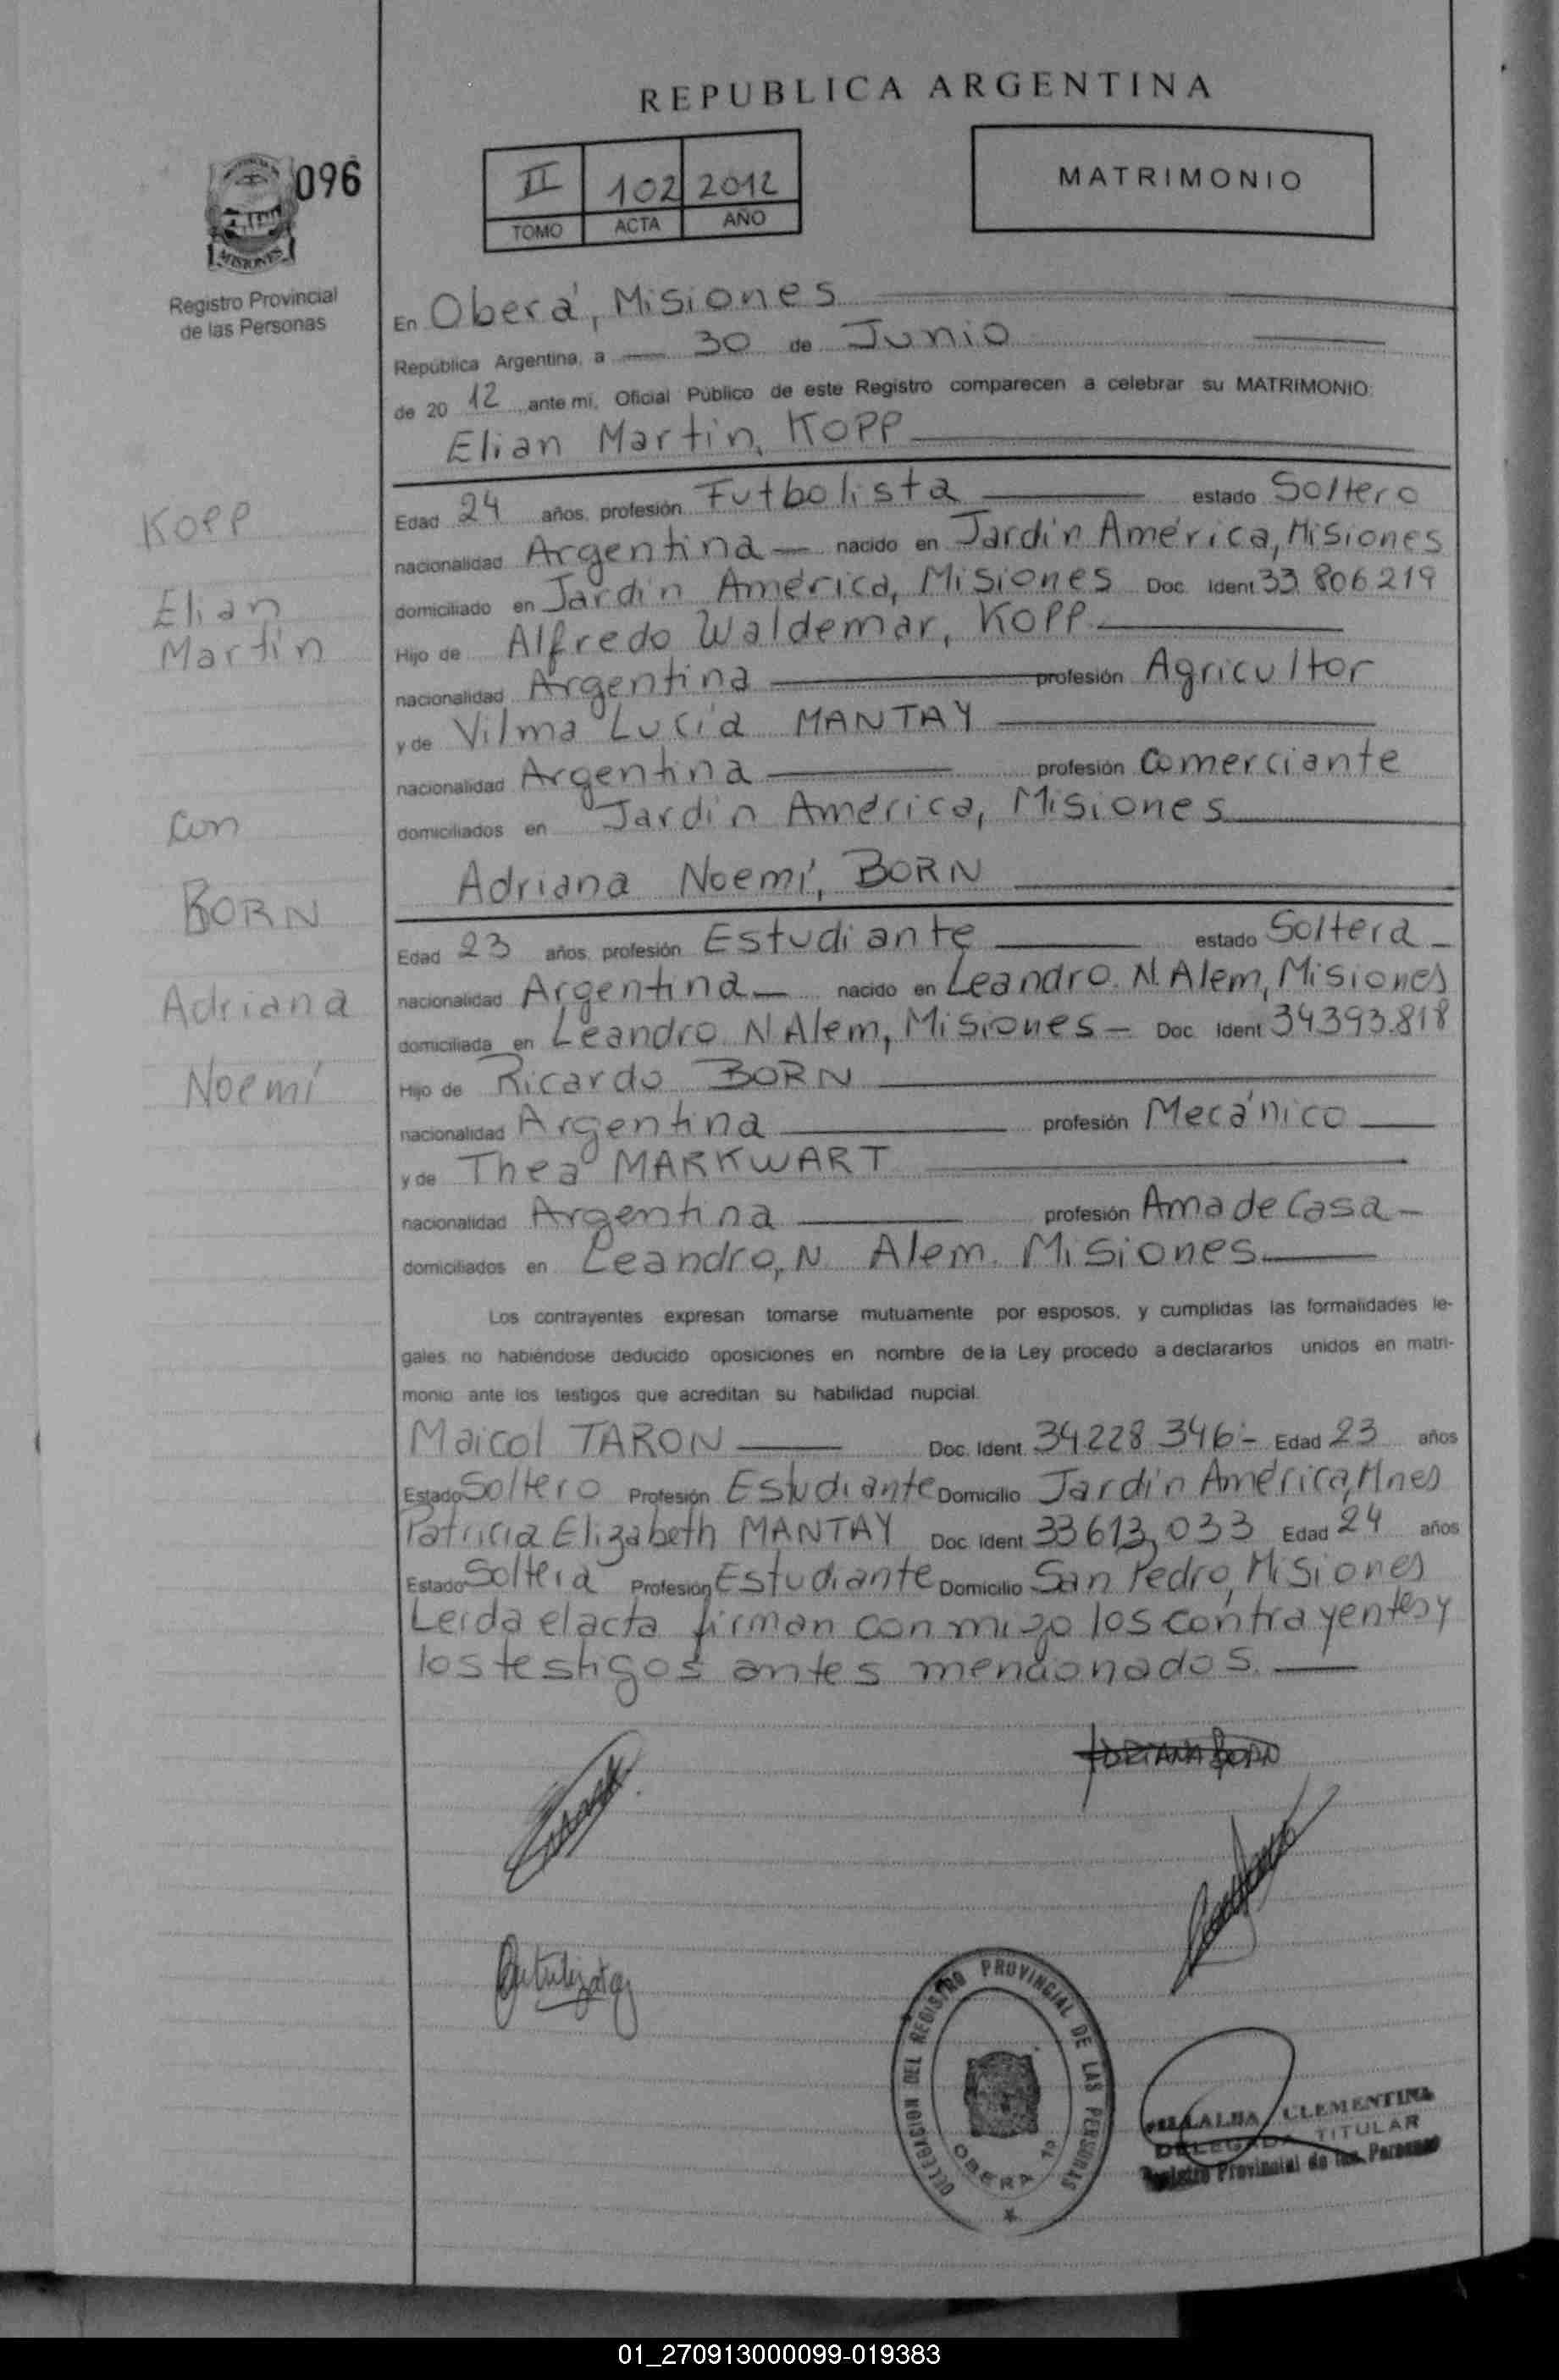 REPUBLICA ARGENTINA
096
II 102 2012
TOMO ACTA AÑO
MATRIMONIO
MISIONES
Registro Provincial
de las Personas
En Oberá, Misiones
República Argentina, a 30 de Junio
de 20 12 ante mí, Oficial Público de este Registro comparecen a celebrar su MATRIMONIO:
Elian Martin, KOPP
Kopp
Elian
Martin
con
BORN
Adriana
Noemí
Edad 24 años, profesión Futbolista estado Soltero
nacionalidad Argentina nacido en Jardín América, Misiones
domiciliado en Jardín América, Misiones Doc. Ident 33.806.219
Hijo de Alfredo Waldemar, KOPP
nacionalidad Argentina profesión Agricultor
y de Vilma Lucía MANTAY
nacionalidad Argentina profesión Comerciante
domiciliados en Jardín América, Misiones
Adriana Noemí, BORN
Edad 23 años, profesión Estudiante estado Soltera
nacionalidad Argentina nacido en Leandro N. Alem, Misiones
domiciliada en Leandro N Alem, Misiones Doc. Ident 34.393.818
Hijo de Ricardo BORN
nacionalidad Argentina profesión Mecánico
y de Thea MARKWART
nacionalidad Argentina profesión Ama de Casa
domiciliados en Leandro, N. Alem. Misiones
Los contrayentes expresan tomarse mutuamente por esposos, y cumplidas las formalidades le-
gales no habiéndose deducido oposiciones en nombre de la Ley procedo a declararlos unidos en matri-
monio ante los testigos que acreditan su habilidad nupcial.
Maicol TARON Doc. Ident. 34.228.346 Edad 23 años
Estado Soltero Profesión Estudiante Domicilio Jardín América, Mnes
Patricia Elizabeth MANTAY Doc. Ident. 33.613.033 Edad 24 años
Estado Soltera Profesión Estudiante Domicilio San Pedro, Misiones
Leída el acta firman con migo los contrayentes y
los testigos antes mencionados.
ADRIANA BORN
DELEGACION DEL REGISTRO PROVINCIAL DE LAS PERSONAS
OBERA 1ª
VILLALBA CLEMENTINA
DELEGADA TITULAR
Registro Provincial de las Personas
01_270913000099-019383